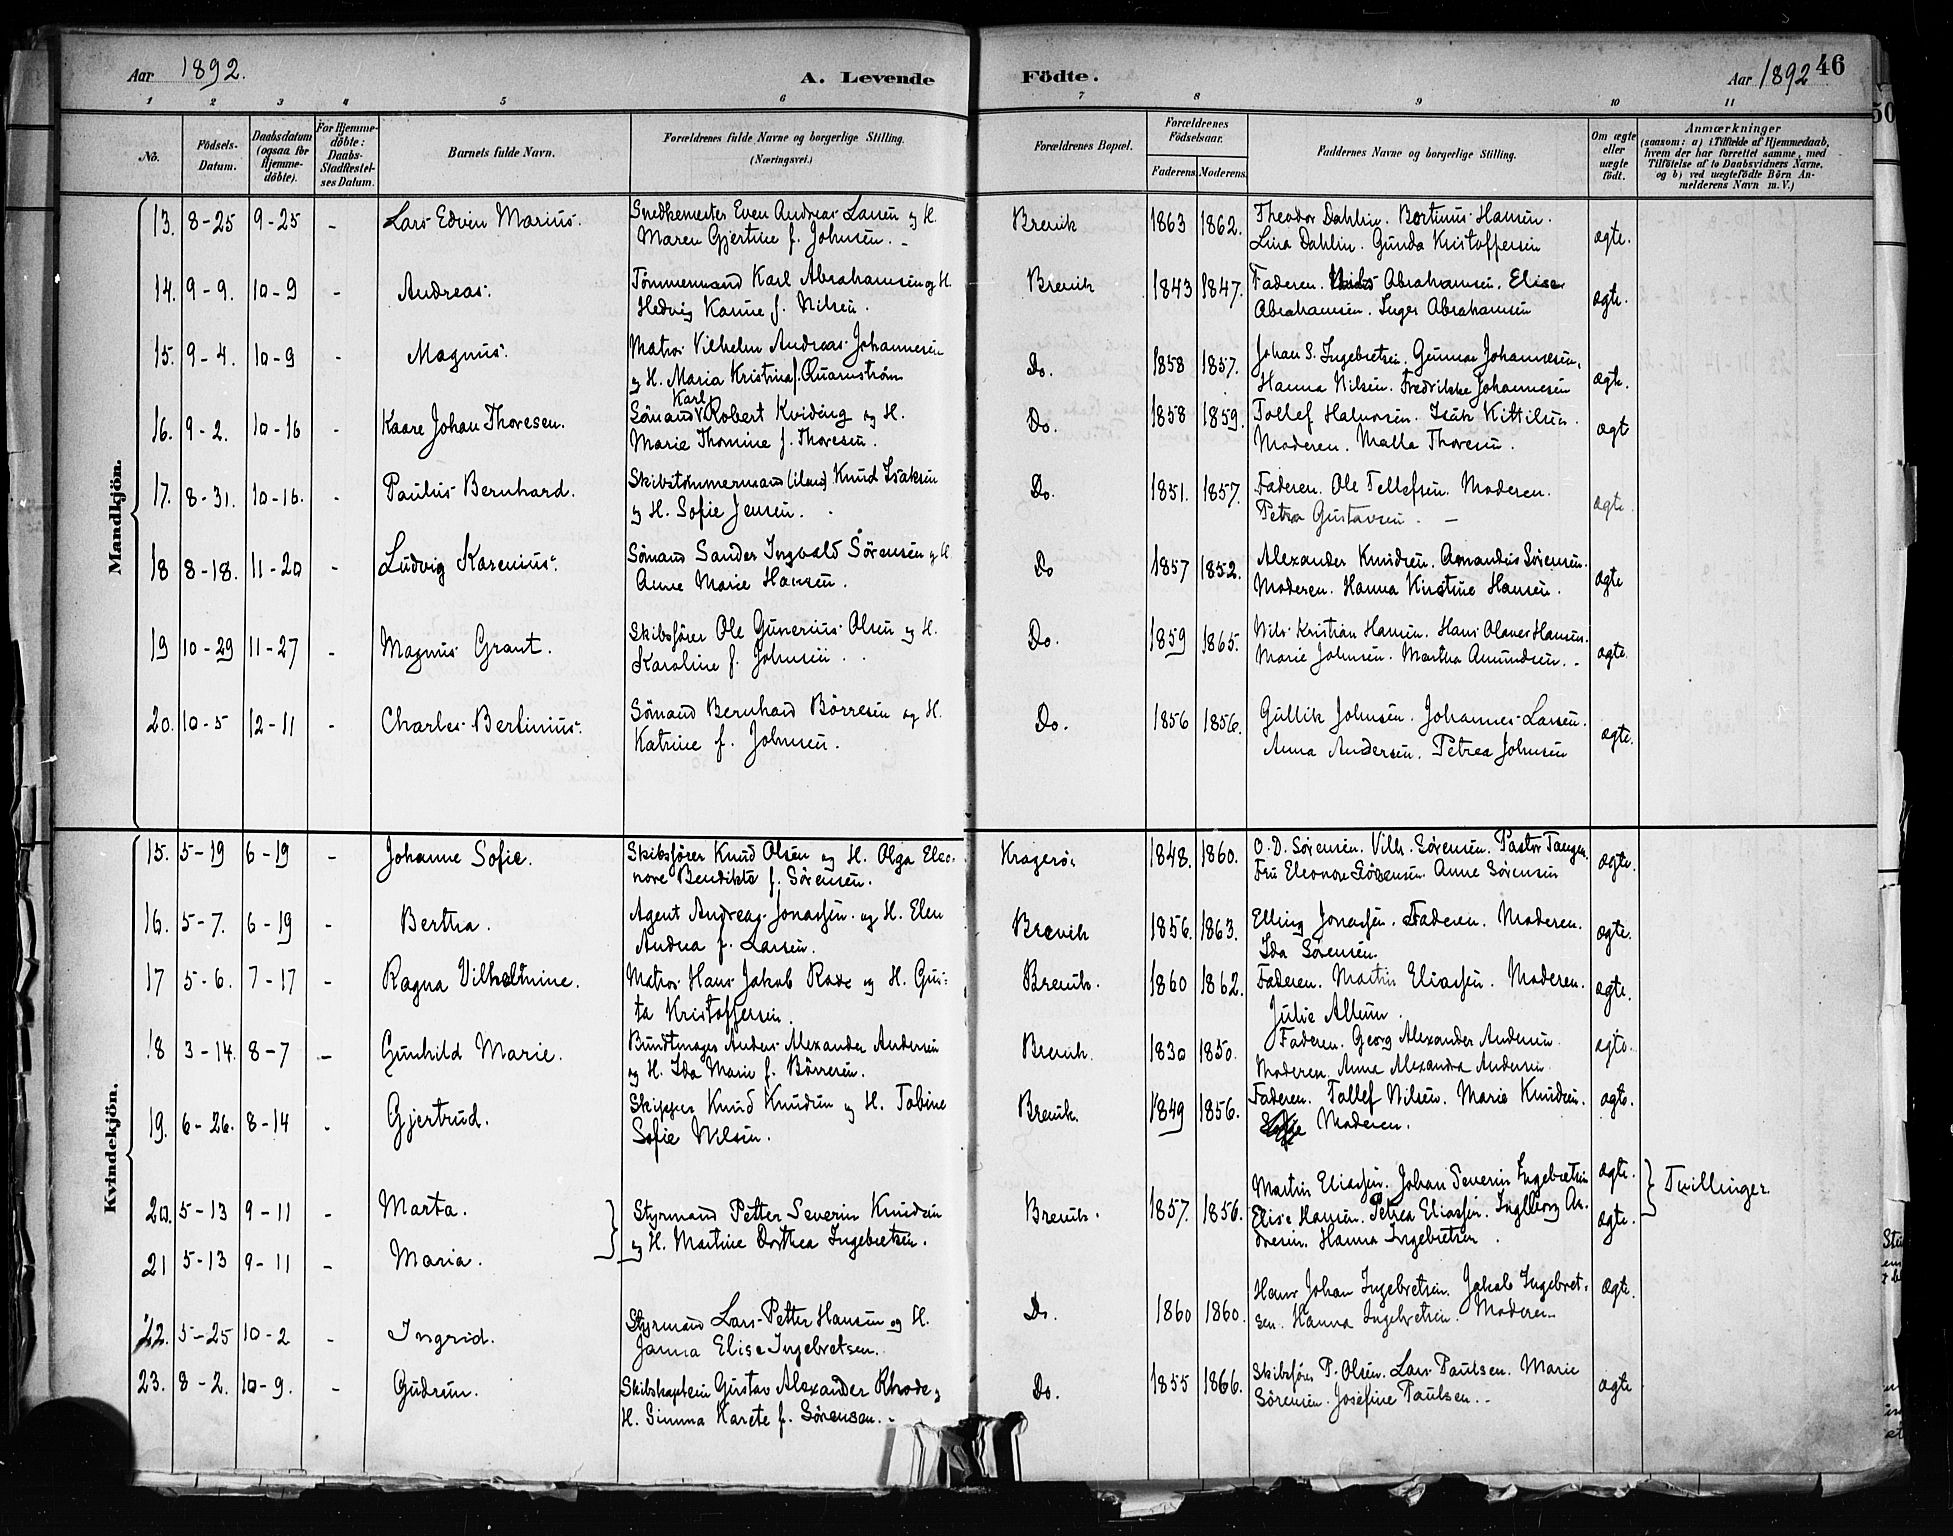 Aar 1892. A. Levende Födte. Aar 1892 46
1 2 3 4 5 6 7 8 9 10 11
No. Födsels-Datum. Daabsdatum (ogsaa for Hjemmedöbte). For Hjemmedöbte: Daabs-Stadfæstelses Datum. Barnets fulde Navn. Forældrenes fulde Navne og borgerlige Stilling. (Næringsvei.) Forældrenes Bopæl. Forældrenes Födselsaar. Faderens. Moderens. Faddernes Navne og borgerlige Stilling. Om ægte eller uægte födt. Anmærkninger (saasom: a) i Tilfælde af Hjemmedaab, hvem der har forrettet samme, med Tilföielse af to Daabsvidners Navne, og b) ved uægtefödte Börn Anmelderens Navn m. V.)
50
Mandkjön.
13. 8-25 9-25 - Lars Edvin Marius. Snedkermester Even Andreas Larsen og H. Brevik 1863 1862. Theodor Dahlin. Bertinus Hansen. ægte.
Maren Gjertine f. Johnsen. - Lina Dahlin. Gunda Kristoffersen
14. 9-9. 10-9 - Andreas. Tömmermand Karl Abrahamsen og H. Brevik 1843 1847. Faderen. Abrahamsen. Elise ægte.
Hedvig Karine f. Nilsen. Abrahamsen. Inger Abrahamsen
15. 9-4. 10-9 - Magnus. Matros Vilhelm Andreas Johannesen Do. 1858 1857. Johan S. Ingebretsen. Gunnar Johannesen. ægte.
og H. Maria Kristina f. Quarnström Hanna Nilsen. Fredrikke Johannesen
16. 9-2. 10-16 - Kaare Johan Thoresen. Sömand Karl Robert Kviding og H. Do. 1858 1859. Tollef Halvorsen. Isak Kittilsen. ægte
Marie Thomine f. Thoresen. Moderen. Malla Thoresen.
17. 8-31. 10-16. - Paulus Bernhard. Skibstömmermand (iland) Knud Isaksen Do. 1851. 1857. Faderen. Ole Tellefsen. Moderen. ægte.
og H. Sofie Jensen. Petra Gustavsen. -
18 8-18. 11-20 - Ludvig Karenius. Sömand Sander Ingvald Sörensen og H Do 1857 1852. Alexander Knudsen. Amandus Sörensen. ægte
Anne Marie Hansen. Moderen. Hanna Kirstine Hansen.
19 10-29 11-27 - Magnus Grant. Skibsförer Ole Gunerius Olsen og H. Do. 1859 1865. Nils Kristian Hansen. Hans Olaver Hansen. ægte.
Karoline f. Johnsen. Marie Johnsen. Martha Amundsen. -
20. 10-5 12-11 - Charles Bertinius. Sömand Bernhard Börresen og H. Do. 1856 1856. Gullik Johnsen. Johannes Larsen. ægte.
Katrine f. Johnsen. Anna Andersen. Petrea Johnsen
Kvindekjön.
15. 5-19 6-19 - Johanne Sofie. Skibsförer Knud Olsen og H. Olga Eleo- Kragerö. 1848. 1860. O. D. Sörensen. Vilh. Sörensen. Pastor Taugen. ægte.
nore Bendikte f. Sörensen. Fru Eleonore Sörensen. Anne Sörensen
16. 5-7. 6-19 - Bertha. Agent Andreas Jonassen og H. Elen Brevik 1856. 1863. Elling Jonassen. Faderen. Moderen. ægte.
Andrea f. Larsen. Ida Sörensen.
17 5-6. 7-17 - Ragna Vilhelmine. Matros Hans Jakob Rode og H. Gus- Brevik. 1860 1862. Faderen. Martin Eliassen. Moderen. ægte.
ta Kristoffersen. Julie Allum.
18 3-14. 8-7 - Gunhild Marie. Bundtmager Anders Alexander Andersen Brevik. 1830 1850. Faderen. Georg Alexander Andersen. ægte.
og H. Ida Marie f. Börresen. Moderen. Anne Alexandra Andersen.
19. 6-26. 8-14 - Gjertrud. Skipper Knud Knudsen og H. Tobine Brevik. 1849 1856. Faderen. Tollef Nilsen. Marie Knudsen. ægte.
Sofie Nilsen. Moderen.
20. 5-13 9-11 - Marta. Styrmand Petter Severin Knudsen Brevik. 1857. 1856. Martin Eliassen. Johan Severin Ingebretsen ægte. Tvillinger
og H. Martine Dorthea Ingebretsen. Elise Hansen. Petrea Eliassen. Ingeborg An- ægte.
21 5-13 9-11 - Maria. dresen. Hanna Ingebretsen.
22. 5-25 10-2 - Ingrid. Styrmand Lars Petter Hansen og H. Do. 1860 1860. Hans Johan Ingebretsen. Jakob Ingebret- ægte.
Janna Elise Ingebretsen. sen. Hanna Ingebretsen. Moderen
23. 8-2. 10-9. - Gudrun. Skibskaptein Gustav Alexander Rhode og Do. 1855 1866. Skibsförer P. Olsen. Lars Paulsen. Marie ægte
H. Simma Karete f. Sörensen. - Sörensen. Josefine Paulsen. -